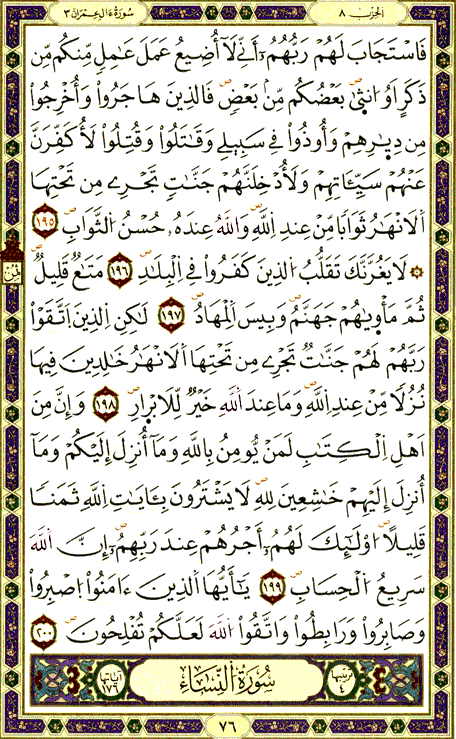 الحزب ٨
سُورَةُ ءَالِ عِمْرَانَ ٣
فَاسْتَجَابَ لَهُمْ رَبُّهُمُۥٓ أَنِّے لَآ أُضِيعُ عَمَلَ عَٰمِلٖ مِّنكُم مِّن
ذَكَرٍ اَوُ ا۟نثۭيٰ بَعْضُكُم مِّنۢ بَعْضٖۖ فَالذِينَ هَاجَرُواْ وَأُخْرِجُواْ
مِن دِيٰ۪رِهِمْ وَأُوذُواْ فِے سَبِيلِے وَقَٰتَلُواْ وَقُتِلُواْ لَأُكَفِّرَنَّ
عَنْهُمْ سَيِّـَٔاتِهِمْ وَلَأُدْخِلَنَّهُمْ جَنَّٰتٖ تَجْرِے مِن تَحْتِهَا
اَ۬لَانْهَٰرُ ثَوَاباٗ مِّنْ عِندِ اِ۬للَّهِۖ وَاللَّهُ عِندَهُۥ حُسْنُ اُ۬لثَّوَابِۖ ١٩٥
۞ لَا يَغُرَّنَّكَ تَقَلُّبُ اُ۬لذِينَ كَفَرُواْ فِے اِ۬لْبِلَٰدِۖ ١٩٦ مَتَٰعٞ قَلِيلٞ
ثُمَّ مَأْو۪يٰهُمْ جَهَنَّمُۖ وَبِيسَ اَ۬لْمِهَادُۖ ١٩٧ لَٰكِنِ اِ۬لذِينَ اَ۪تَّقَوْاْ
رَبَّهُمْ لَهُمْ جَنَّٰتٞ تَجْرِے مِن تَحْتِهَا اَ۬لَانْهَٰرُ خَٰلِدِينَ فِيهَا
نُزُلاٗ مِّنْ عِندِ اِ۬للَّهِۖ وَمَا عِندَ اَ۬للَّهِ خَيْرٞ لِّلَابْر۪ارِۖ ١٩٨ وَإِنَّ مِنَ
اَهْلِ اِ۬لْكِتَٰبِ لَمَنْ يُّومِنُ بِاللَّهِ وَمَآ أُنزِلَ إِلَيْكُمْ وَمَآ
أُنزِلَ إِلَيْهِمْ خَٰشِعِينَ لِلهِ لَا يَشْتَرُونَ بِـَٔايَٰتِ اِ۬للَّهِ ثَمَناٗ
قَلِيلاًۖ ا۟وْلَٰٓئِكَ لَهُمُۥٓ أَجْرُهُمْ عِندَ رَبِّهِمُۥٓۖ إِنَّ اَ۬للَّهَ
سَرِيعُ اُ۬لْحِسَابِۖ ١٩٩ يَٰٓأَيُّهَا اَ۬لذِينَ ءَامَنُواْ اُ۪صْبِرُواْ
وَصَابِرُواْ وَرَابِطُواْ وَاتَّقُواْ اُ۬للَّهَ لَعَلَّكُمْ تُفْلِحُونَۖ ٢٠٠
ترتيبها ٤
سُورَةُ النِّسَاءِ
آياتها ١٧٦
٧٦